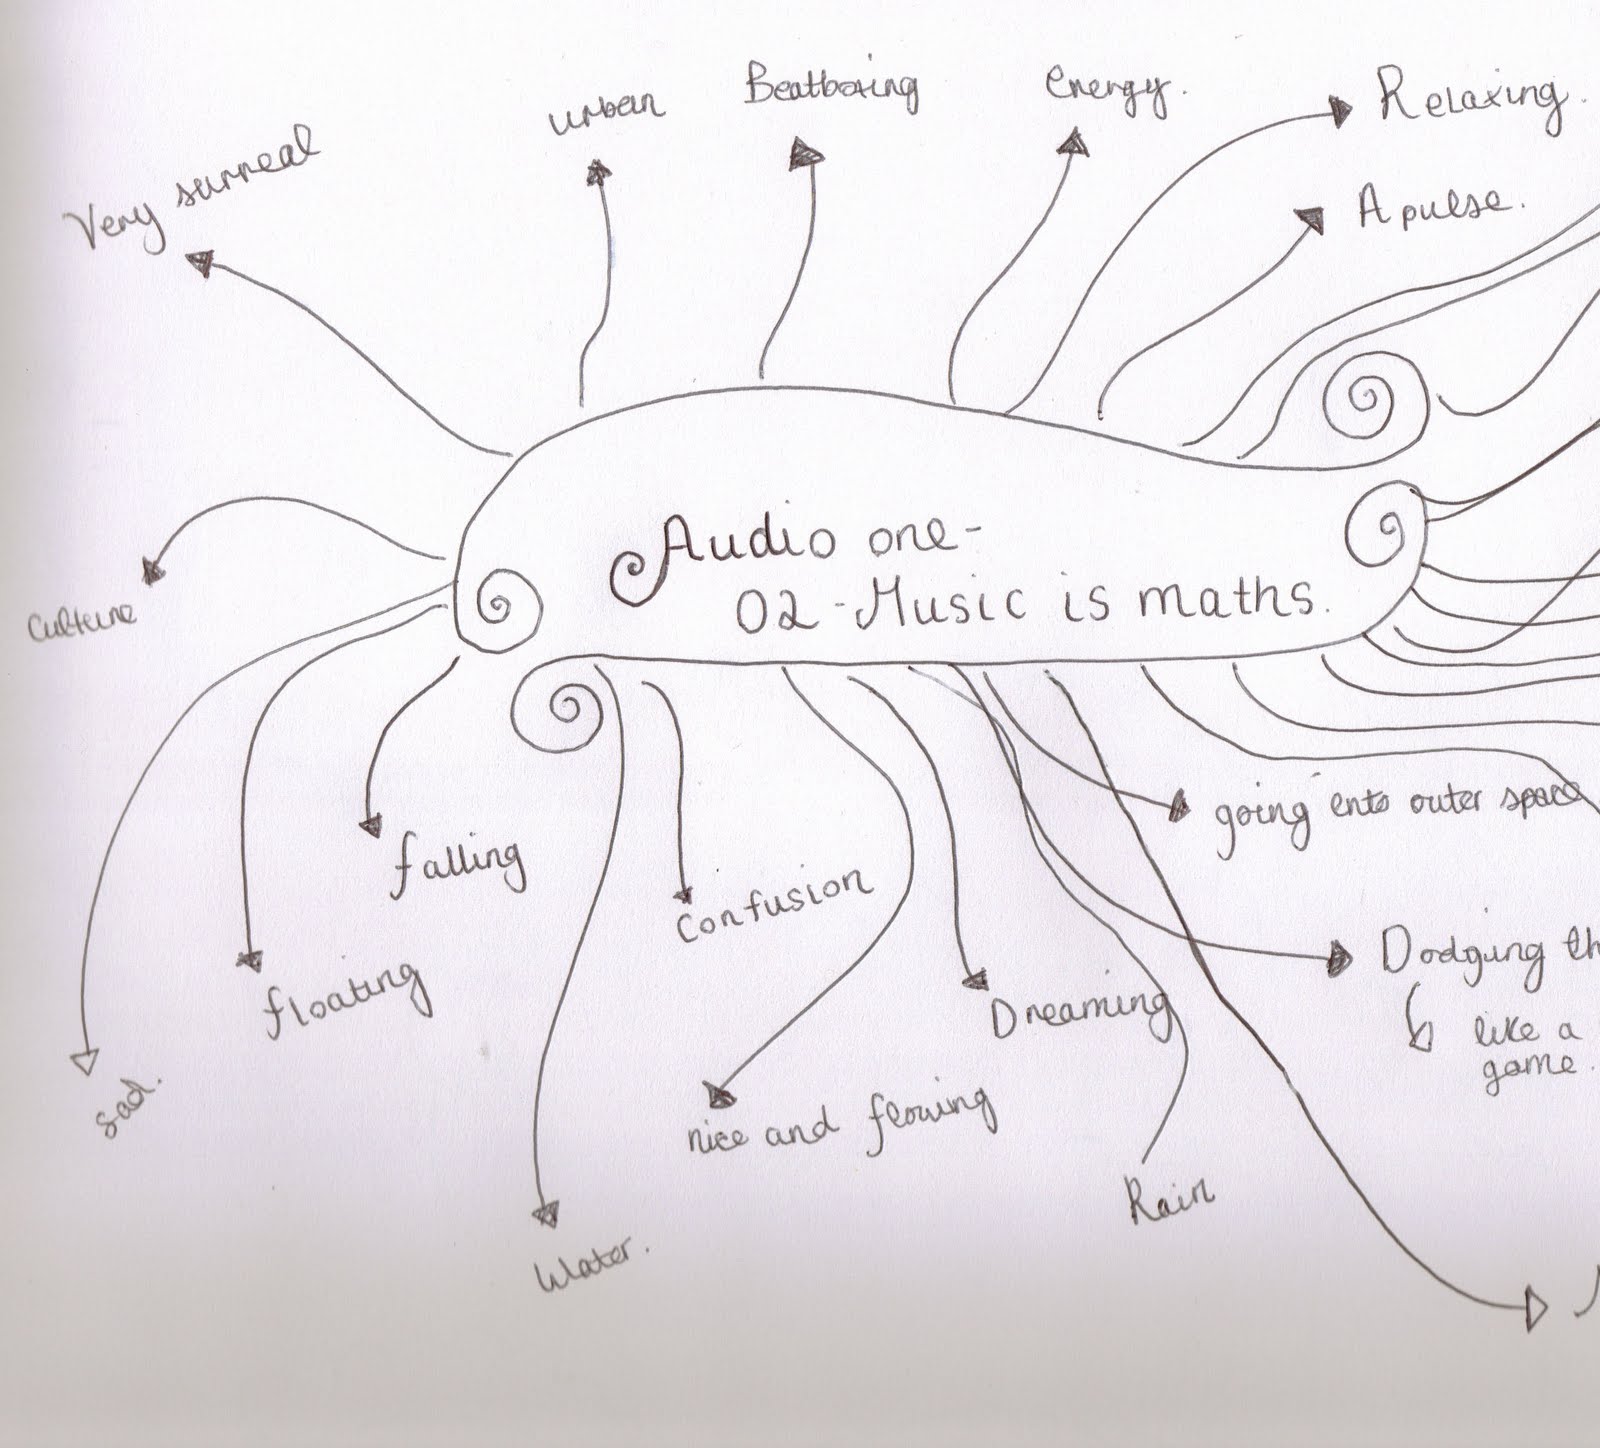 Very surreal
urban
Beatboxing
energy.
Relaxing.
A pulse.
Audio one-
02-Music is maths.
culture
sad.
floating
falling
Water.
confusion
nice and flowing
Dreaming
Rain
going ento outer space
Dodging th
like a
game.